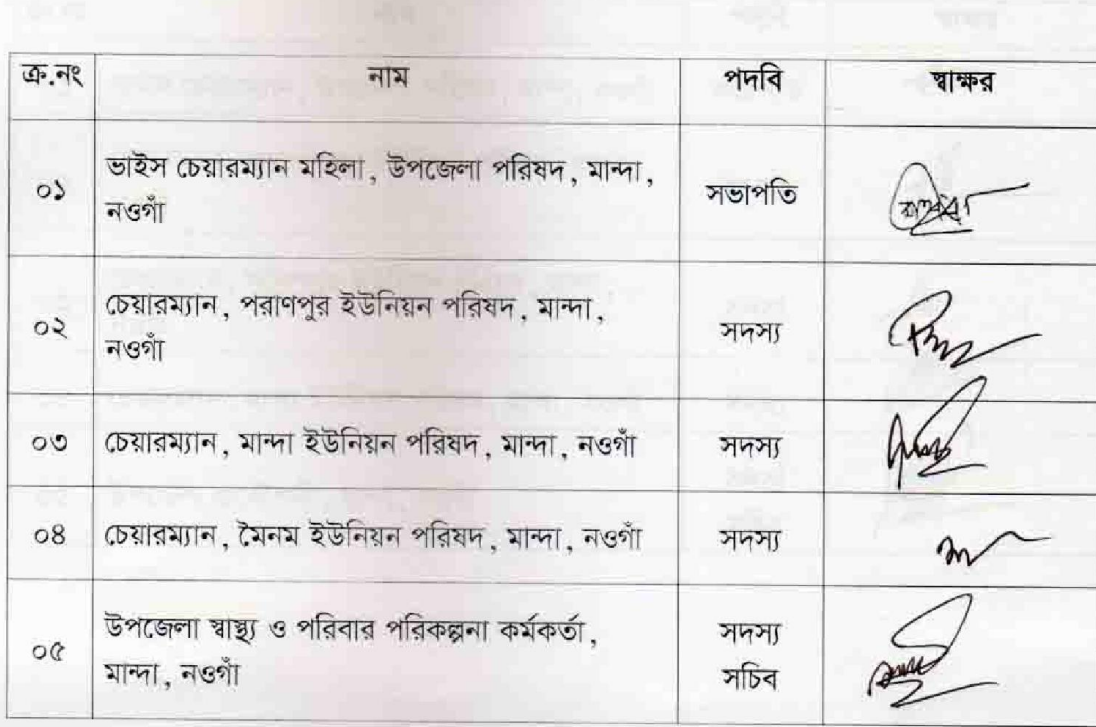 ক্র.নং নাম পদবি স্বাক্ষর
০১ ভাইস চেয়ারম্যান মহিলা, উপজেলা পরিষদ, মান্দা, নওগাঁ সভাপতি
০২ চেয়ারম্যান, পরাণপুর ইউনিয়ন পরিষদ, মান্দা, নওগাঁ সদস্য
০৩ চেয়ারম্যান, মান্দা ইউনিয়ন পরিষদ, মান্দা, নওগাঁ সদস্য
০৪ চেয়ারম্যান, মৈনম ইউনিয়ন পরিষদ, মান্দা, নওগাঁ সদস্য
০৫ উপজেলা স্বাস্থ্য ও পরিবার পরিকল্পনা কর্মকর্তা, মান্দা, নওগাঁ সদস্য সচিব